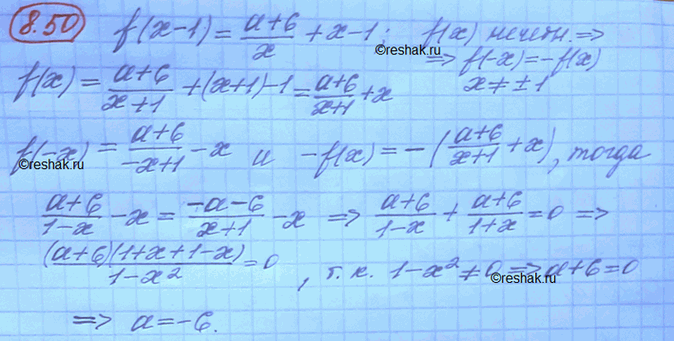 8.50 f(x-1) = (a+6)/x + x-1; f(x) нечётн. ⇒
©reshak.ru
⇒ f(-x) = -f(x)
f(x) = (a+6)/(x+1) + (x+1)-1 = (a+6)/(x+1) + x x ≠ ±1
f(-x) = (a+6)/(-x+1) - x и -f(x) = -((a+6)/(x+1) + x), тогда
©reshak.ru
(a+6)/(1-x) - x = (-a-6)/(x+1) - x ⇒ (a+6)/(1-x) + (a+6)/(1+x) = 0 ⇒
((a+6)(1+x+1-x))/(1-x²) = 0, т.к. 1-x² ≠ 0 ⇒ a+6=0
©reshak.ru
⇒ a = -6.